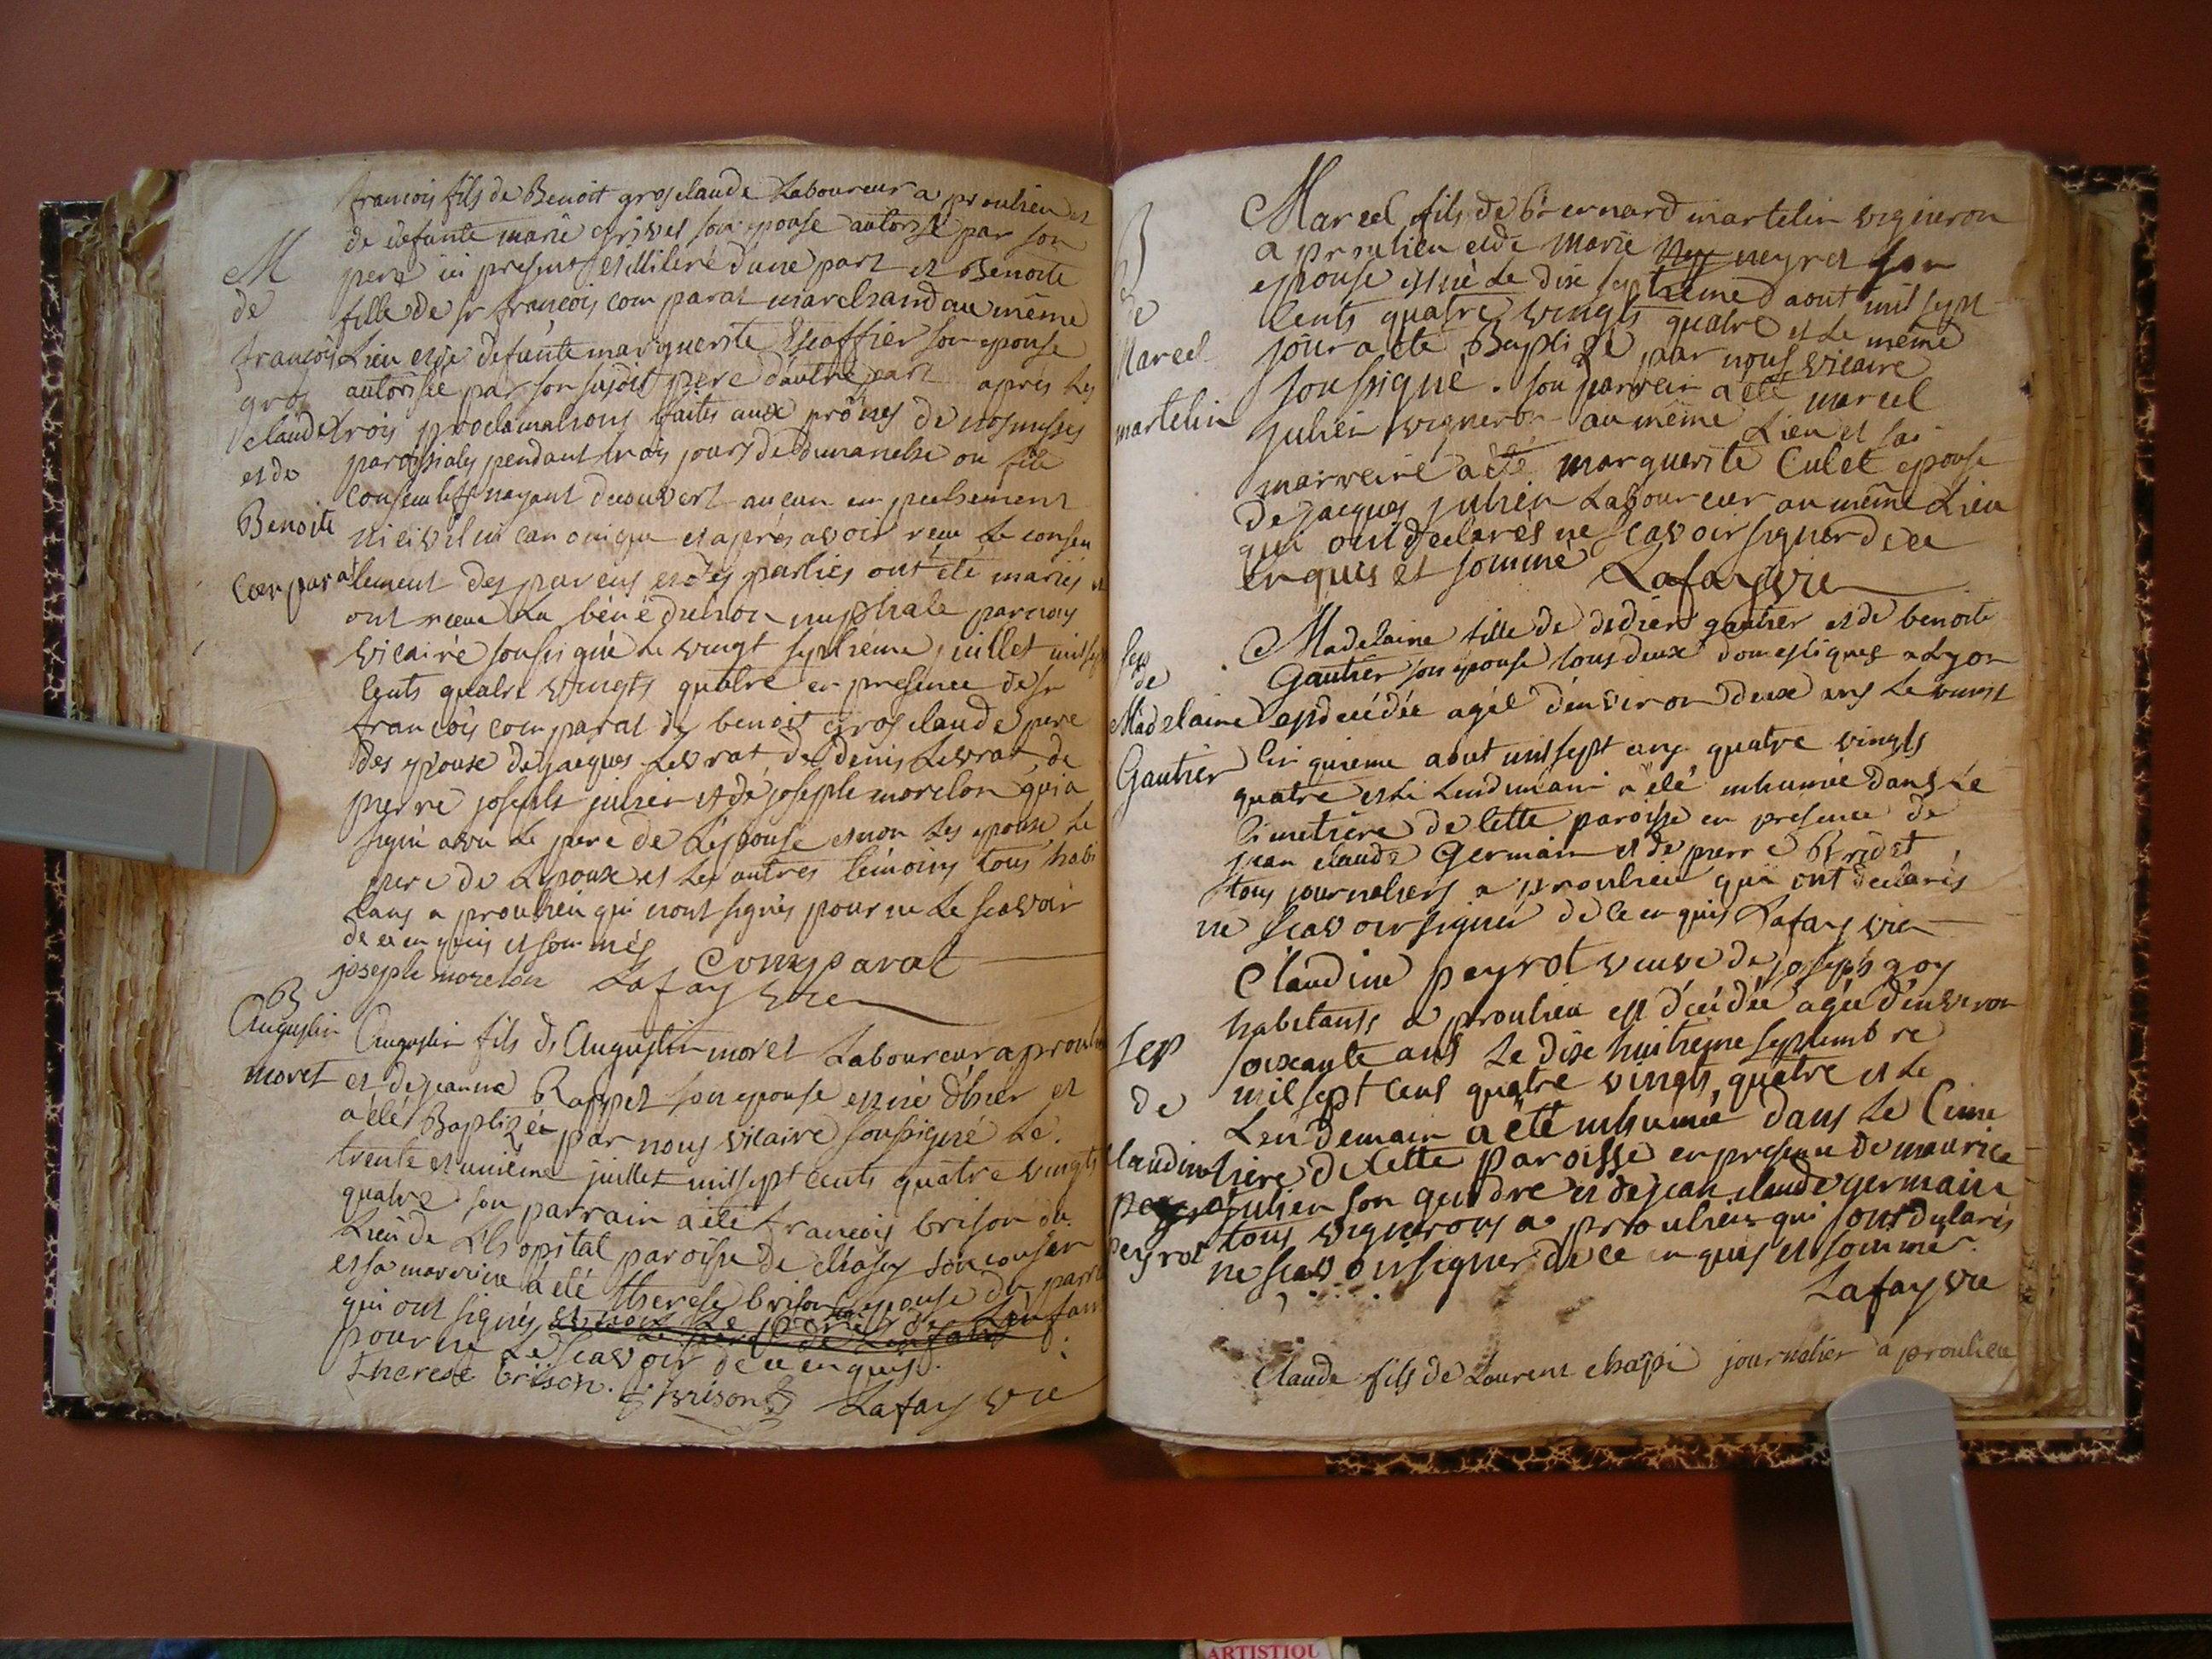 francois fils de Benoit grosclaude Laboureur a proulieu et
de defunte marie grivel son epouse autorisé par son
M
pere ici present et illiteré dune part et Benoite
de
fille de sr francois comparat marchand au même
francois
Lieu et de defunte marguerite Escoffier son epouse
gros
autorisée par son susdit pere dautre part apres les
claude
trois proclamations faites aux prônes de nos messes
paroissiales pendant trois jours de dimanche ou fête
et de
consecutifs nayant decouvert aucun empechement
Benoite
ni civil ni canonique et après avoir recu le consen
Comparat
tement des parens et des parties ont été mariés et
ont recu La bénédiction nuptiale par nous
vicaire soussigné le vingt septieme juillet mil sept
cents quatre vingts quatre en presence de sr
francois comparat de benoit gros claude pere
des epoux de jacques Levrat de denis Levrat de
pierre joseph julien et de joseph morelon qui a
signé avec le pere de Lépouse et non les epoux le
pere de Lepoux et les autres temoins tous habi
tans a proulieu qui nont signés pour ne le scavoir
de ce enquis et sommés
Comparat
joseph morelon Lafay vic
B
Augustin
Augustin fils d'Augustin moret Laboureur a proulieu
moret
et de jeanne Rappet son epouse est né d'hier et
a été Baptizé par nous vicaire soussigné le
trente et unieme juillet mil sept cents quatre vingts
quatre son parrain a été francois brison du
Lieu de L'hopital paroisse de chasey son cousin
et sa marreine a été therese brison epouse du parrain
qui ont signés et non le pere de Lenfant
pour ne Le scavoir de ce enquis.
therese brison. f brison Lafay vic
B
Marcel fils de bernard martelin vigneron
a proulieu et de Marie neyret son
epouse est né le dix septieme aout mil sept
de
cents quatre vingts quatre et le même
Marcel
jour a été Baptizé par nous vicaire
soussigné. son parrein a été marcel
martelin
julien vigneron au même Lieu et sa
marreine a été marguerite Culet epouse
de jacques julien Laboureur au même Lieu
qui ont declarés ne scavoir signer de ce
enquis et sommé Lafay vic
Madelaine fille de didier gautier et de benoite
sep
Gautier son epouse tous deux domestiques a Lyon
de
Madelaine
est decédée agée d'environ deux ans le vingt
Gautier
cinquieme aout mil sept cens quatre vingts
quatre et le Lendemain a été inhumée dans Le
Cimetiere de Cette paroisse en presence de
jean claude Germain et de pierre Bridet
tous journaliers a proulieu qui ont declarés
ne scavoir signer de ce enquis Lafay vic
Claudine peyrot veuve de joseph goy
habitants a proulieu est décédée agée d'environ
Sep
soixante ans Le dix huitieme septembre
de
mil sept cens quatre vingts quatre et le
Lendemain a été inhumée dans Le Cime
Claudine
tiere de Cette paroisse en presence de maurice
julien son gendre et de jean claude germain
peyrot
tous vignerons a proulieu qui ont declarés
ne scavoir signer de ce enquis et sommés
Lafay vic
Claude fils de Laurent chapi journalier a proulieu
ARTISTIQU